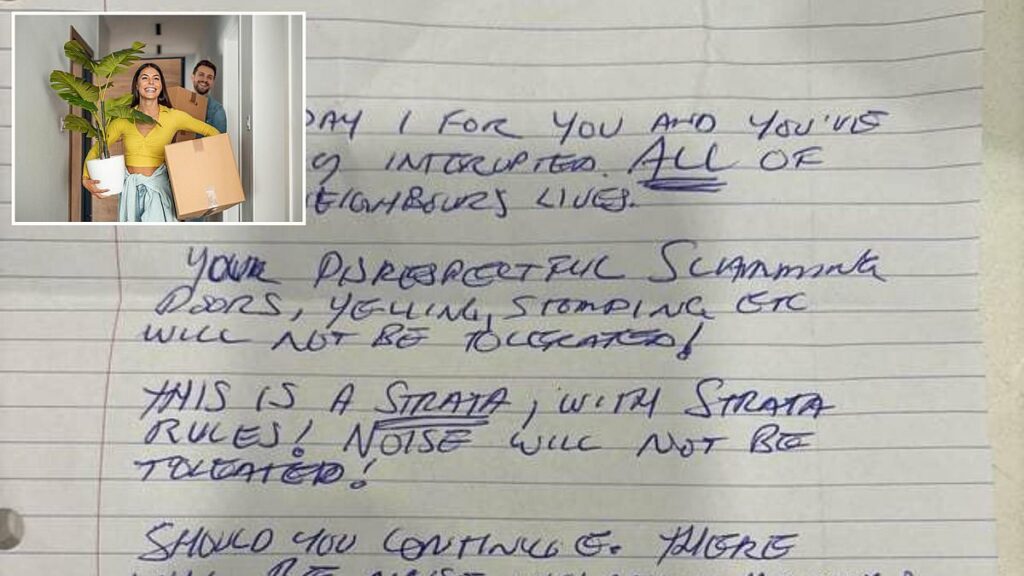 DAY 1 FOR YOU AND YOU'VE
INTERUPTED ALL OF
NEIGHBOURS LIVES.
YOUR DISRESPECTFUL SLAMMING
DOORS, YELLING, STOMPING ETC
WILL NOT BE TOLERATED!
THIS IS A STRATA, WITH STRATA
RULES! NOISE WILL NOT BE
TOLEATED!
SHOULD YOU CONTINUE. THERE
WILL BE NOISE